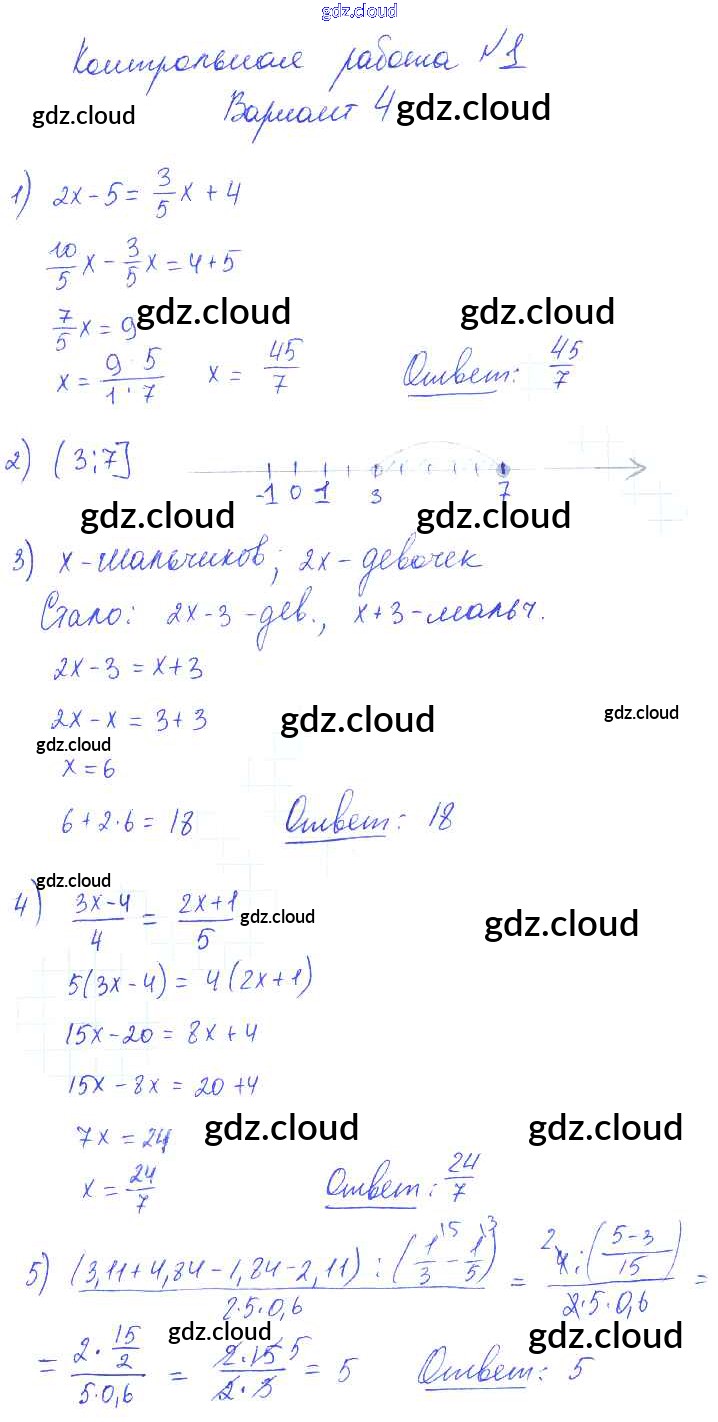 gdz.cloud
Контрольная работа №1
gdz.cloud Вариант 4 gdz.cloud
1) 2x - 5 = 3/5 x + 4
10/5 x - 3/5 x = 4 + 5
7/5 x = 9 gdz.cloud gdz.cloud
x = 9 5 / 1 · 7 x = 45/7 Ответ: 45/7
2) (3;7] -1 0 1 3 7
gdz.cloud gdz.cloud
3) x - мальчиков; 2x - девочек
Стало: 2x - 3 - дев., x + 3 - мальч.
2x - 3 = x + 3
2x - x = 3 + 3 gdz.cloud gdz.cloud
gdz.cloud
x = 6
6 + 2·6 = 18 Ответ: 18
gdz.cloud
4) 3x-4 / 4 = 2x+1 / 5 gdz.cloud gdz.cloud
5(3x - 4) = 4(2x + 1)
15x - 20 = 8x + 4
15x - 8x = 20 + 4
7x = 24 gdz.cloud gdz.cloud
x = 24/7 Ответ: 24/7
5) (3,11 + 4,84 - 1,84 - 2,11) : (1/3 - 1/5) / 2·5·0,6 = 4 : (5-3 / 15) / 2·5·0,6 =
= 2 · 15/2 / 5·0,6 = 2·15 / 2·3 = 5 Ответ: 5
gdz.cloud gdz.cloud